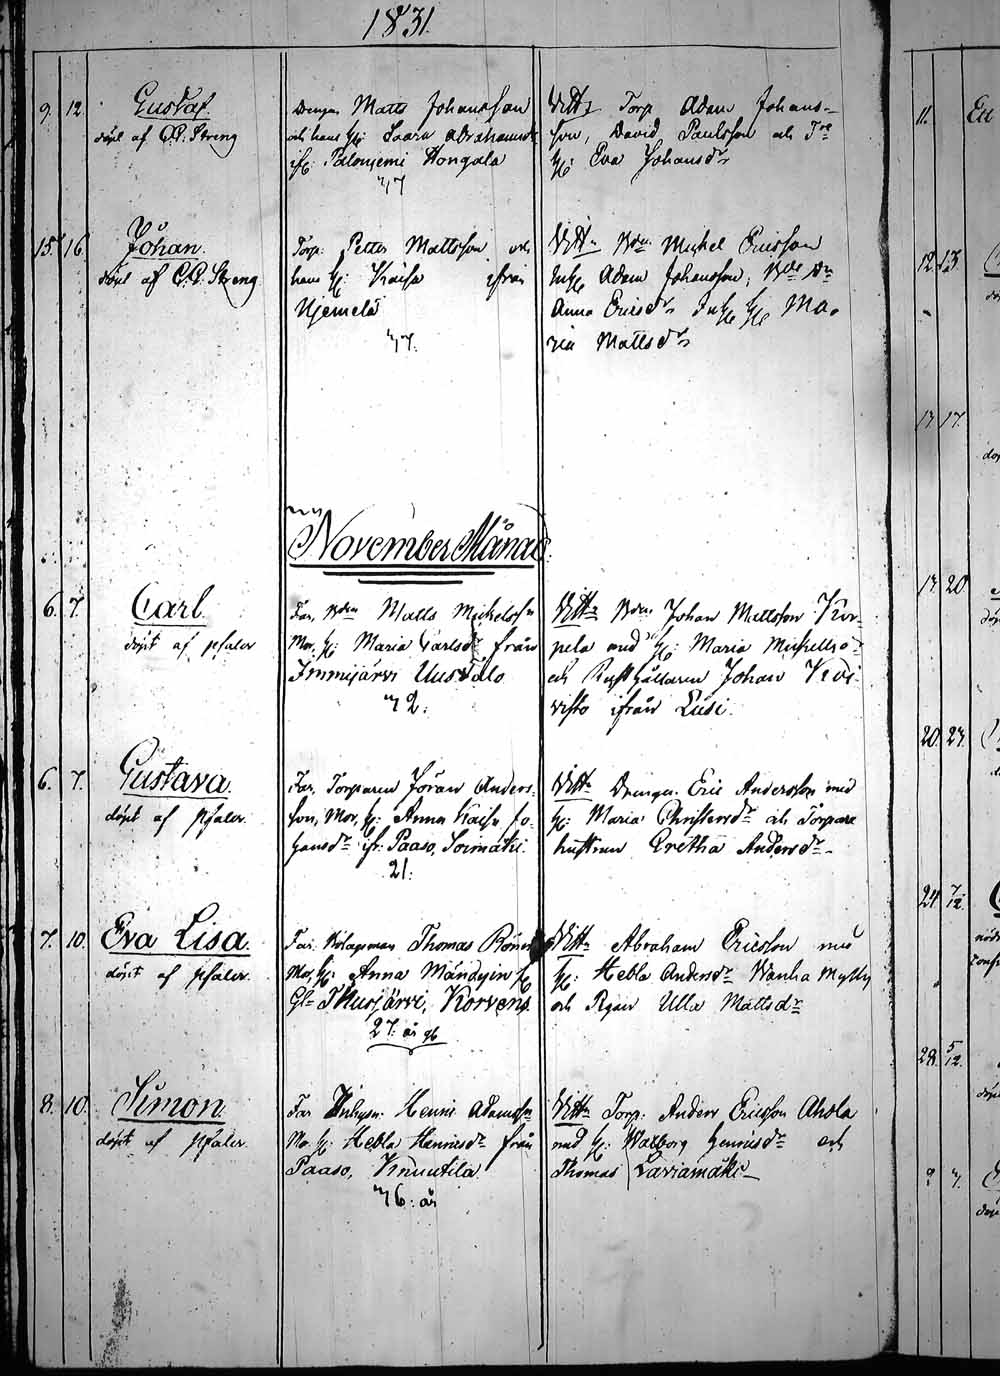 1831.
9. 12. Gustaf.
döpt af C.P. Streng
Drengen Matts Johansson
och hans H: Saara Abrahamsdr
ifr: Palonjemi Hongala
Vittn Torp Adam Johans-
son, David Paulsson och
H: Eva Johansdr
15. 16. Johan.
döpt af C.P. Streng
Torp. Petter Mattsson och
hans H: Kaisa ifrån
Ujemelä
Vittn Bdn Mickel Ericsson
Inh Adam Johansson,
Anna Ericsdr Inh H Ma-
ria Mattsdr
November Månad.
6. 7. Carl.
döpt af psalor
Far, Bdn Matts Mickelsson
Mor, H: Maria Carlsdr från
Immijärvi Uusitalo
Vittn Bdn Johan Mattsson Kor-
pela med H: Maria Mickelsd
och Rusthållaren Johan Koi-
visto ifrån Lusi.
6. 7. Gustava.
döpt af Psalor.
Far, Torparen Jöran Anders-
son, Mor, H: Anna Kaisa Jo-
hansdr ifr: Paaso, Soimäki.
21.
Vittn Drengen Eric Andersson med
H: Maria Christersdr och Torpare
hustrun Gretha Andersdr
7. 10. Eva Lisa.
döpt af psalor.
Far. Bolagsman Thomas
Mor, H: Anna Mändyin
Korvens
27. år
Vittn Abraham Ericsson med
H: Hebla Andersdr Wanha Mylly
och Pigan Ulla Mattsdr
8. 10. Simon.
döpt af Psalor.
Far Inhysn. Henric Adamsson
Mo. H: Hebla Henricsdr från
Paaso, Knuutila.
år
Vittn Torp. Anders Ericsson Ahola
med H: Walborg Henricsdr och
Thomas Lariamäki
11.
12. 13.
17. 17.
17. 20.
20. 27.
24. 7/12.
28. 5/12.